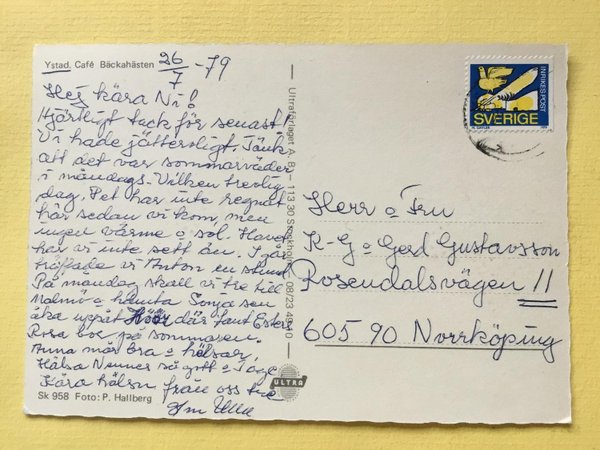 Ystad. Café Bäckahästen
26/7 -79
Hej kära Ni!
Hjärtligt tack för senast.
Vi hade jättersligt. Tänk
att det var sommarväder
i måndags. Vilken trevlig
dag. Det har inte regnat
här sedan vi kom, men
ingen värme o sol. Havet
har vi inte sett än. I går
träffade vi Anton en stund
På måndag skall vi tre till
Malmö o hämta Sonja sen
åka uppåt Höör där faut Ester
Rosa bor på sommaren.
Anna mår bra o hälsar,
Hälsa så gott o
Kära hälsn från oss tre
Ultraförlaget A. B. — 113 30 Stockholm, 08/23
ULTRA
Sk 958 Foto: P. Hallberg
INRIKES POST
SVERIGE
Herr o Fru
K-G o Gerd Gustavsson
Rosendalsvägen 11
605 90 Norrköping